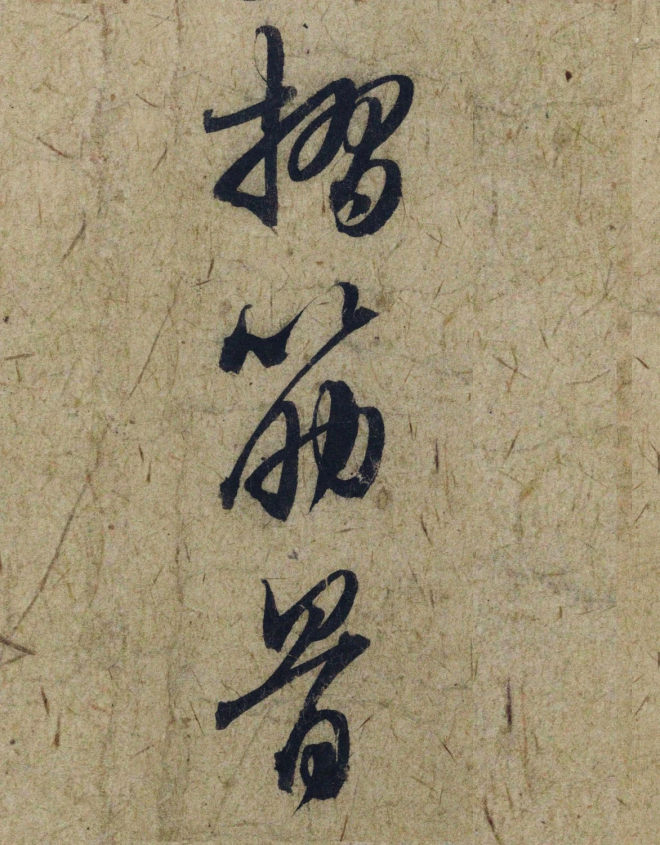 摺筋骨